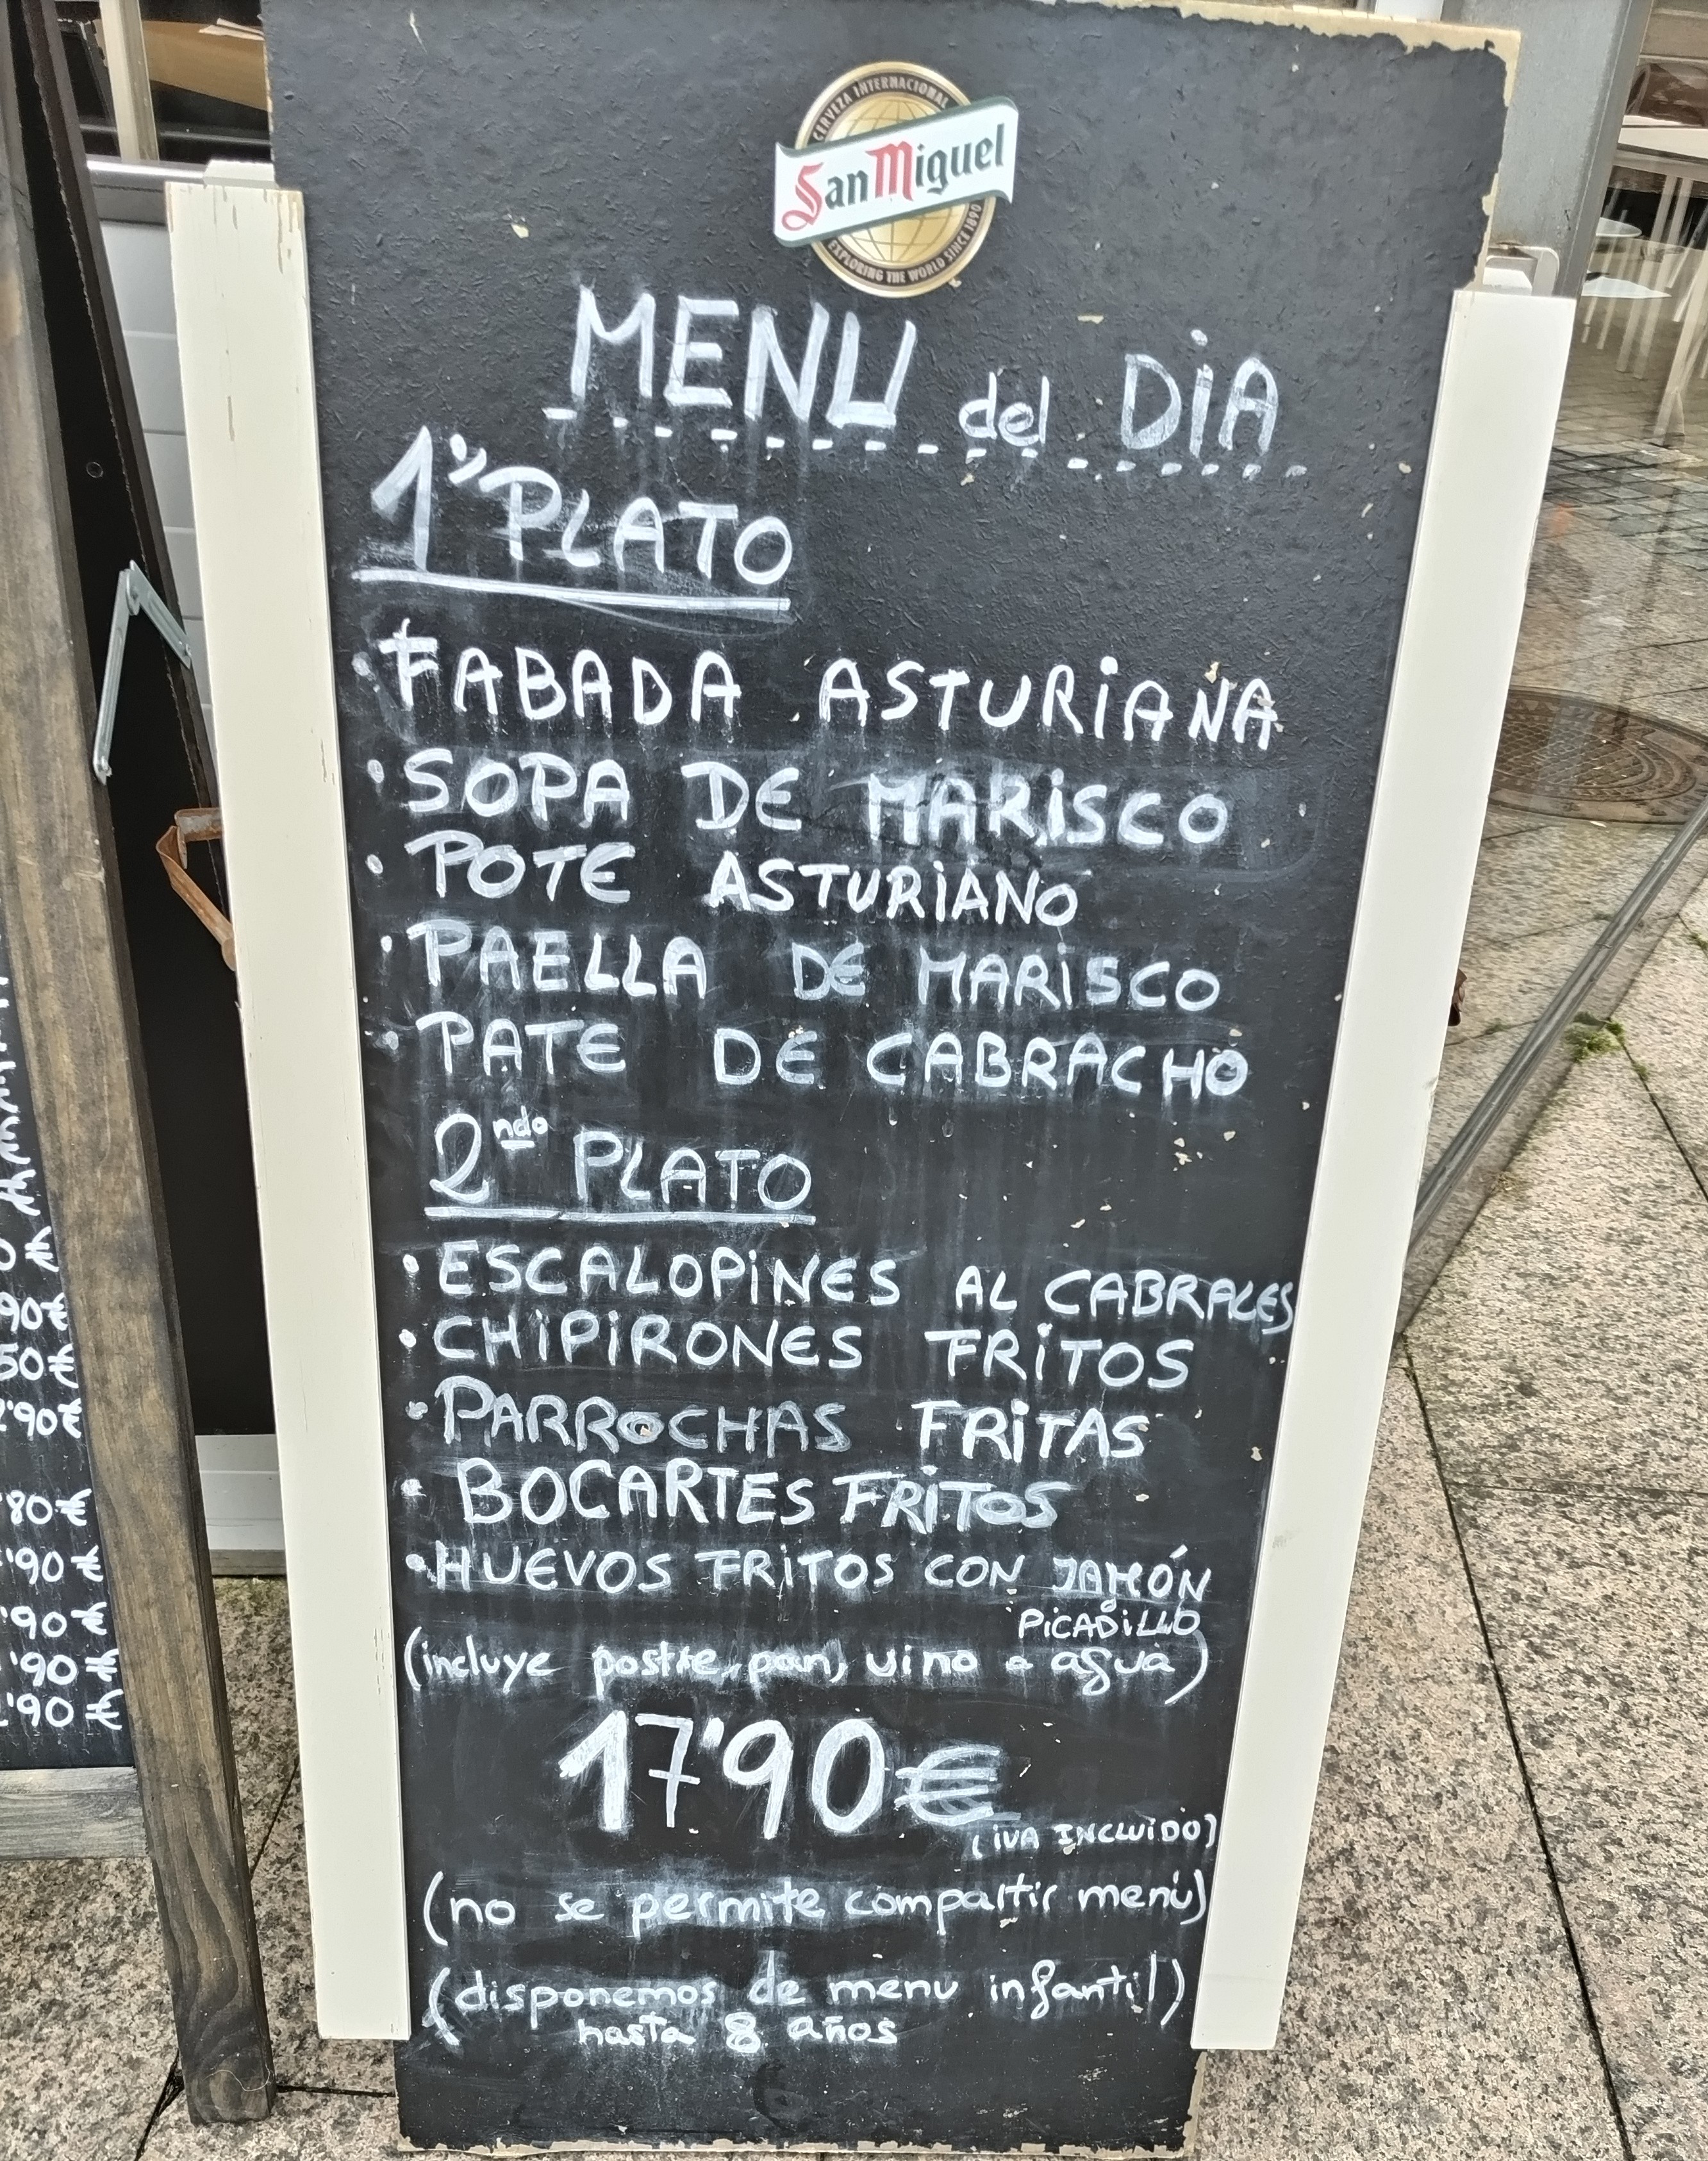 CERVEZA INTERNACIONAL
San Miguel
EXPLORING THE WORLD SINCE 1890
MENU del DiA
1º PLATO
· FABADA ASTURiANA
· SOPA DE MARiSCO
· POTE ASTURiANO
· PAELLA DE MARiSCO
· PATE DE CABRACHO
2ndo PLATO
· ESCALOPiNES AL CABRALES
· CHiPiRONES FRiTOS
· PARROCHAS FRiTAS
· BOCARTES FRiTOS
· HUEVOS FRiTOS CON JAMÓN
o PiCADiLLO
(incluye postre, pan, vino o agua)
17'90€
(iVA INCLUiDO)
(no se permite compartir menú)
(disponemos de menu infantil)
hasta 8 años
90€
50€
'90€
'80€
'90€
'90€
'90€
'90€